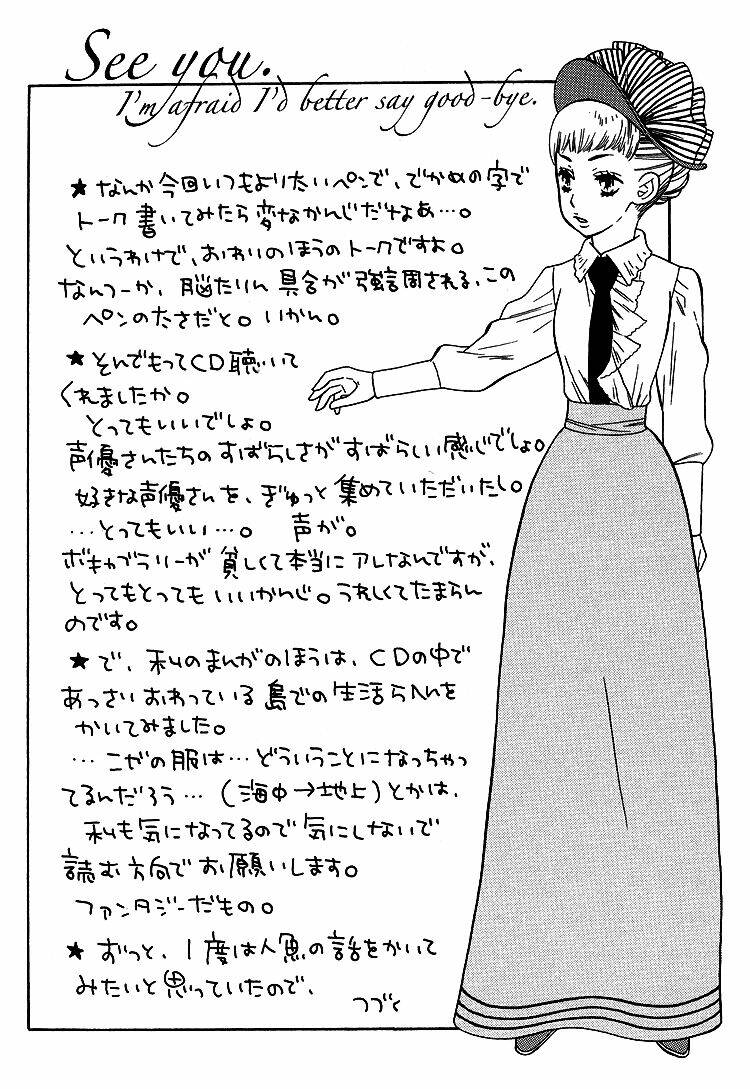 See you.
I'm afraid I'd better say good-bye.
★なんか今回いつもより太いペンで、でかめの字で
トーク書いてみたら変なかんじだなぁ…。
というわけで、おわりのほうのトークですよ。
なんつーか、脳たりん具合が強調される、この
ペンの太さだと。いかん。
★そんでもってCD聴いて
くれましたか。
とってもいいでしょ。
声優さんたちのすばらしさがすばらしい感じでしょ。
好きな声優さんを、ぎゅっと集めていただいたし。
…とってもいい…。声が。
ボキャブラリーが貧しくて本当にアレなんですが、
とってもとってもいいかんじ。うれしくてたまらん
のです。
★で、私のまんがのほうは、CDの中で
あっさりおわっている島での生活らへんを
かいてみました。
…こざの服は…どういうことになっちゃっ
てるんだろう…(海中→地上)とかは、
私も気になってるので気にしないで
読む方向でお願いします。
ファンタジーだもの。
★ずっと、1度は人魚の話をかいて
みたいと思っていたので、
つづく